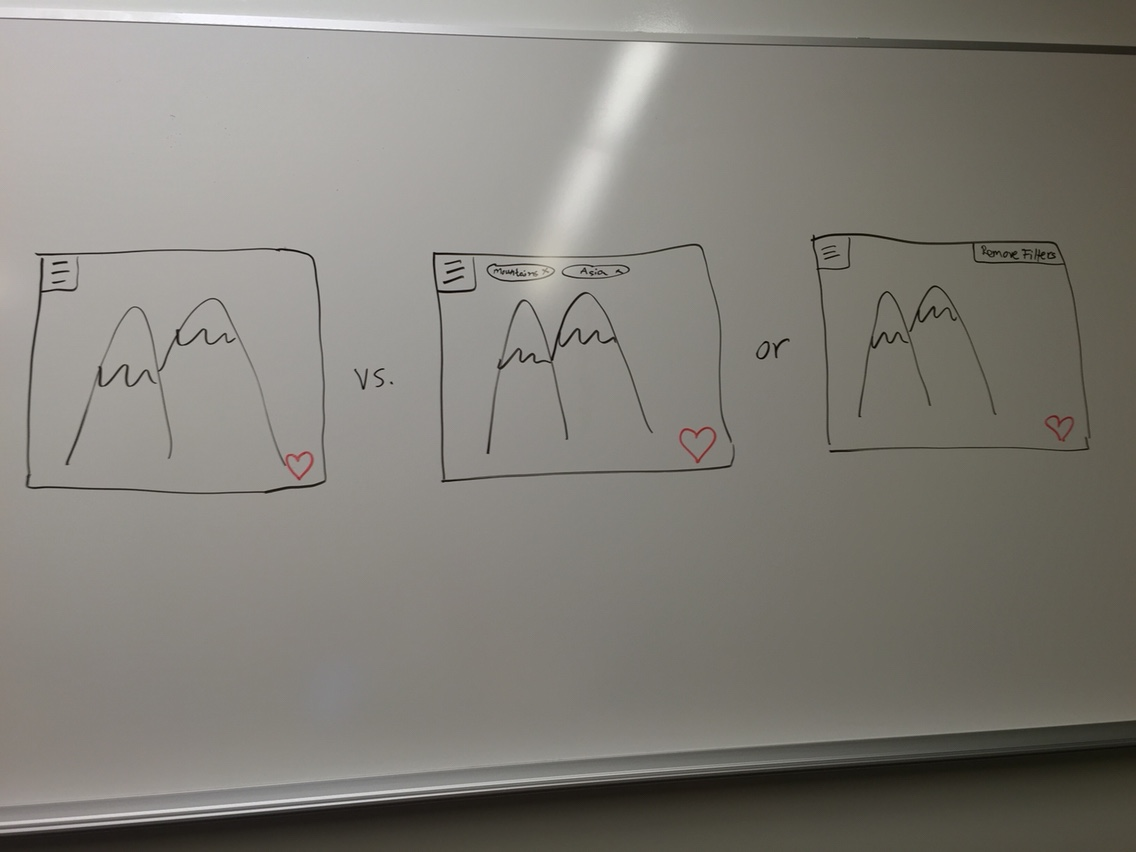 mountains x
Asia x
vs.
or
Remove Filters